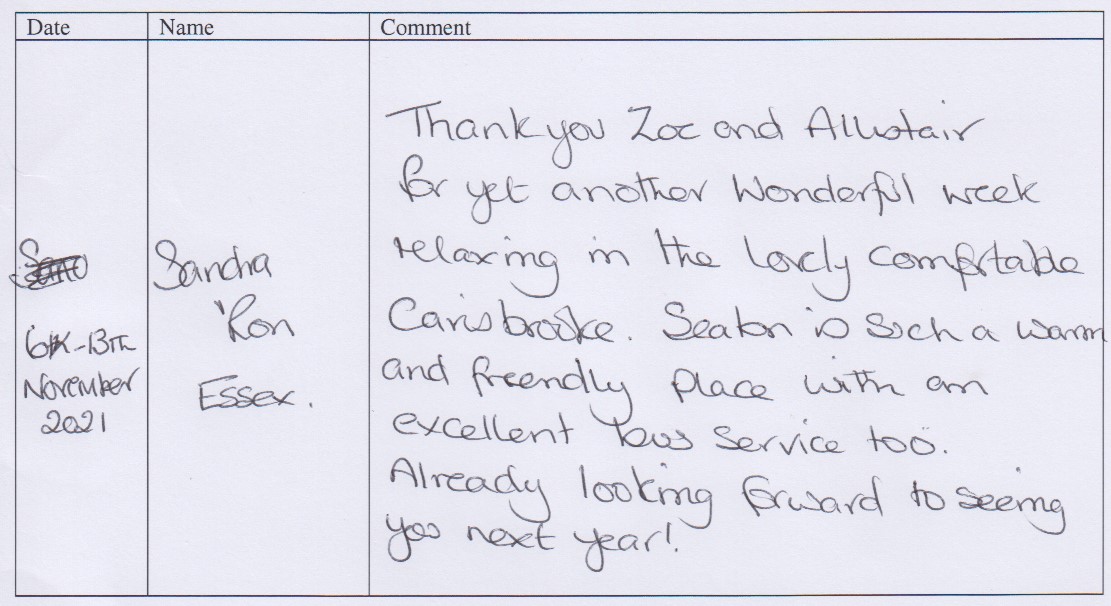 Date Name Comment
Thank you Zoe and Allustair
for yet another wonderful week
relaxing in the lovely comfortable
Carisbrooke. Seaton is such a warm
and freendly place with an
excellent bus service too.
Already looking forward to seeing
you next year!
Sandra
'Ron
Essex.
6th-13th
November
2021